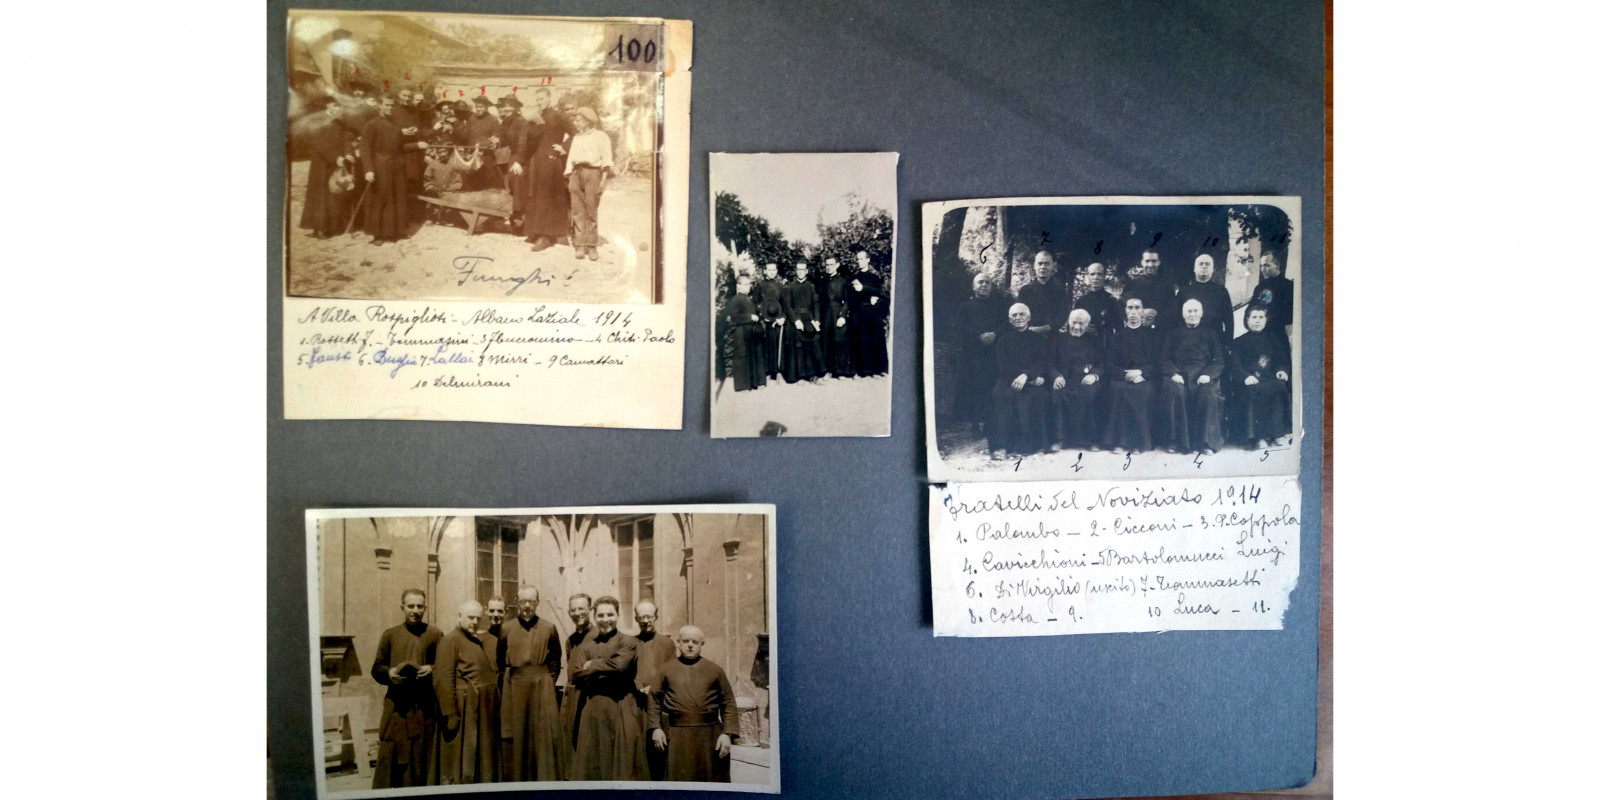 100
3 6 2 8 9 10
Funghi!
A Villa Rospigliosi - Albano Laziale 1914
1. Rossetti F. - Tommasini - 3 - 4 Chiti Paolo
5. Fausti 6. Buglia 7. Lallai 8 Mirri - 9 Camattari
10 Delmirani
6 7 8 9 10 11
1 2 3 4 5
Fratelli del Noviziato 1914
1. Palombo - 2 - Cicconi - 3. P. Coppola
4. Cavicchioni - 5 Bartolomucci Luigi
6. Di Virgilio (uscito) 7 - Tommasetti
8. Costa - 9. 10 Luca - 11.